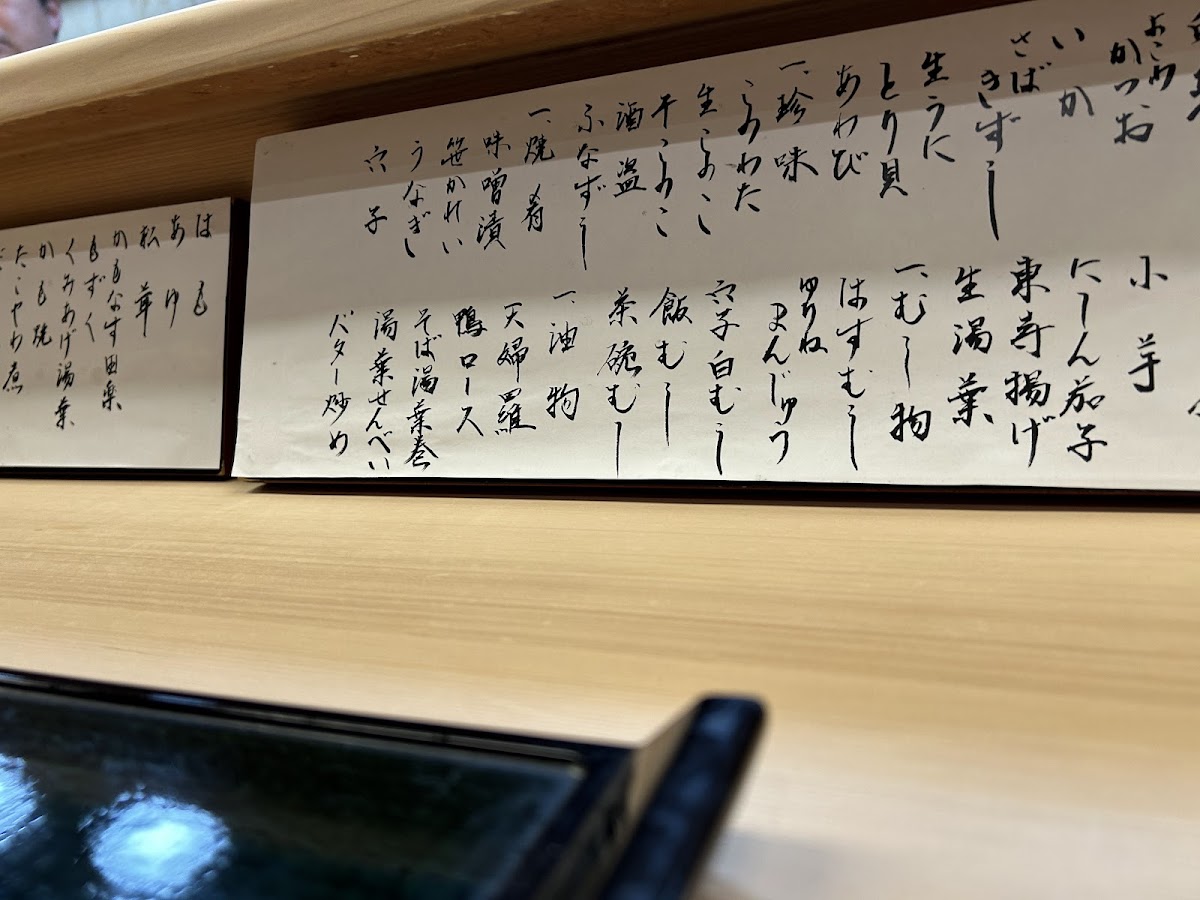 よこわ
かつお
いか
さば
きずし
生うに
とり貝
あわび
一、珍味
このわた
生このこ
干このこ
酒盗
ふなずし
一、焼肴
味噌漬
笹かれい
うなぎ
穴子
小芋
にしん茄子
東寺揚げ
生湯葉
一、むし物
はすむし
ゆりね
まんじゅう
穴子白むし
飯むし
茶碗むし
一、油物
天婦羅
鴨ロース
そば湯葉巻
湯葉せんべい
バター炒め
はも
あゆ
松茸
かもなす田楽
もずく
くみあげ湯葉
かも焼
たこやわ煮